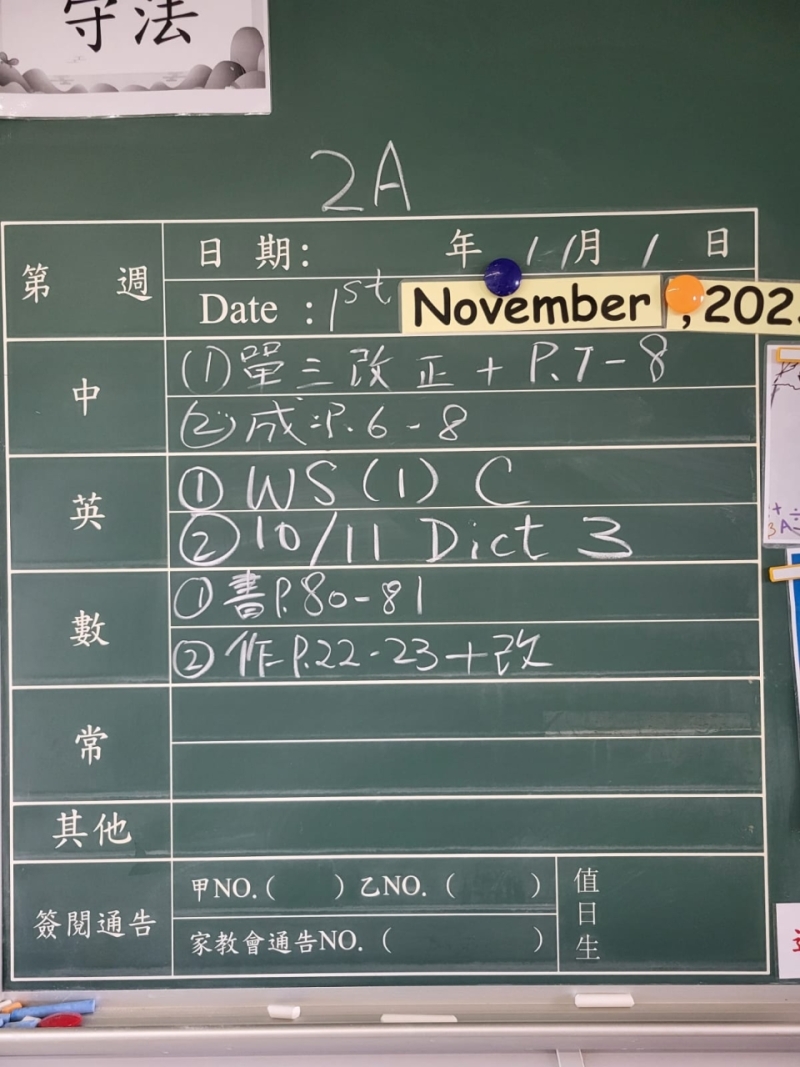 守法
2A
第 週
日 期: 年 11月 1 日
Date : 1st November , 202
中
(1) 單三改正 + P.7-8
(2) 成:P.6-8
英
① WS (1) C
② 10/11 Dict 3
數
① 書P.80-81
② 作P.22-23+改
常
其他
簽閱通告
甲NO.( ) 乙NO. ( )
家教會通告NO. ( )
值日生
3 A